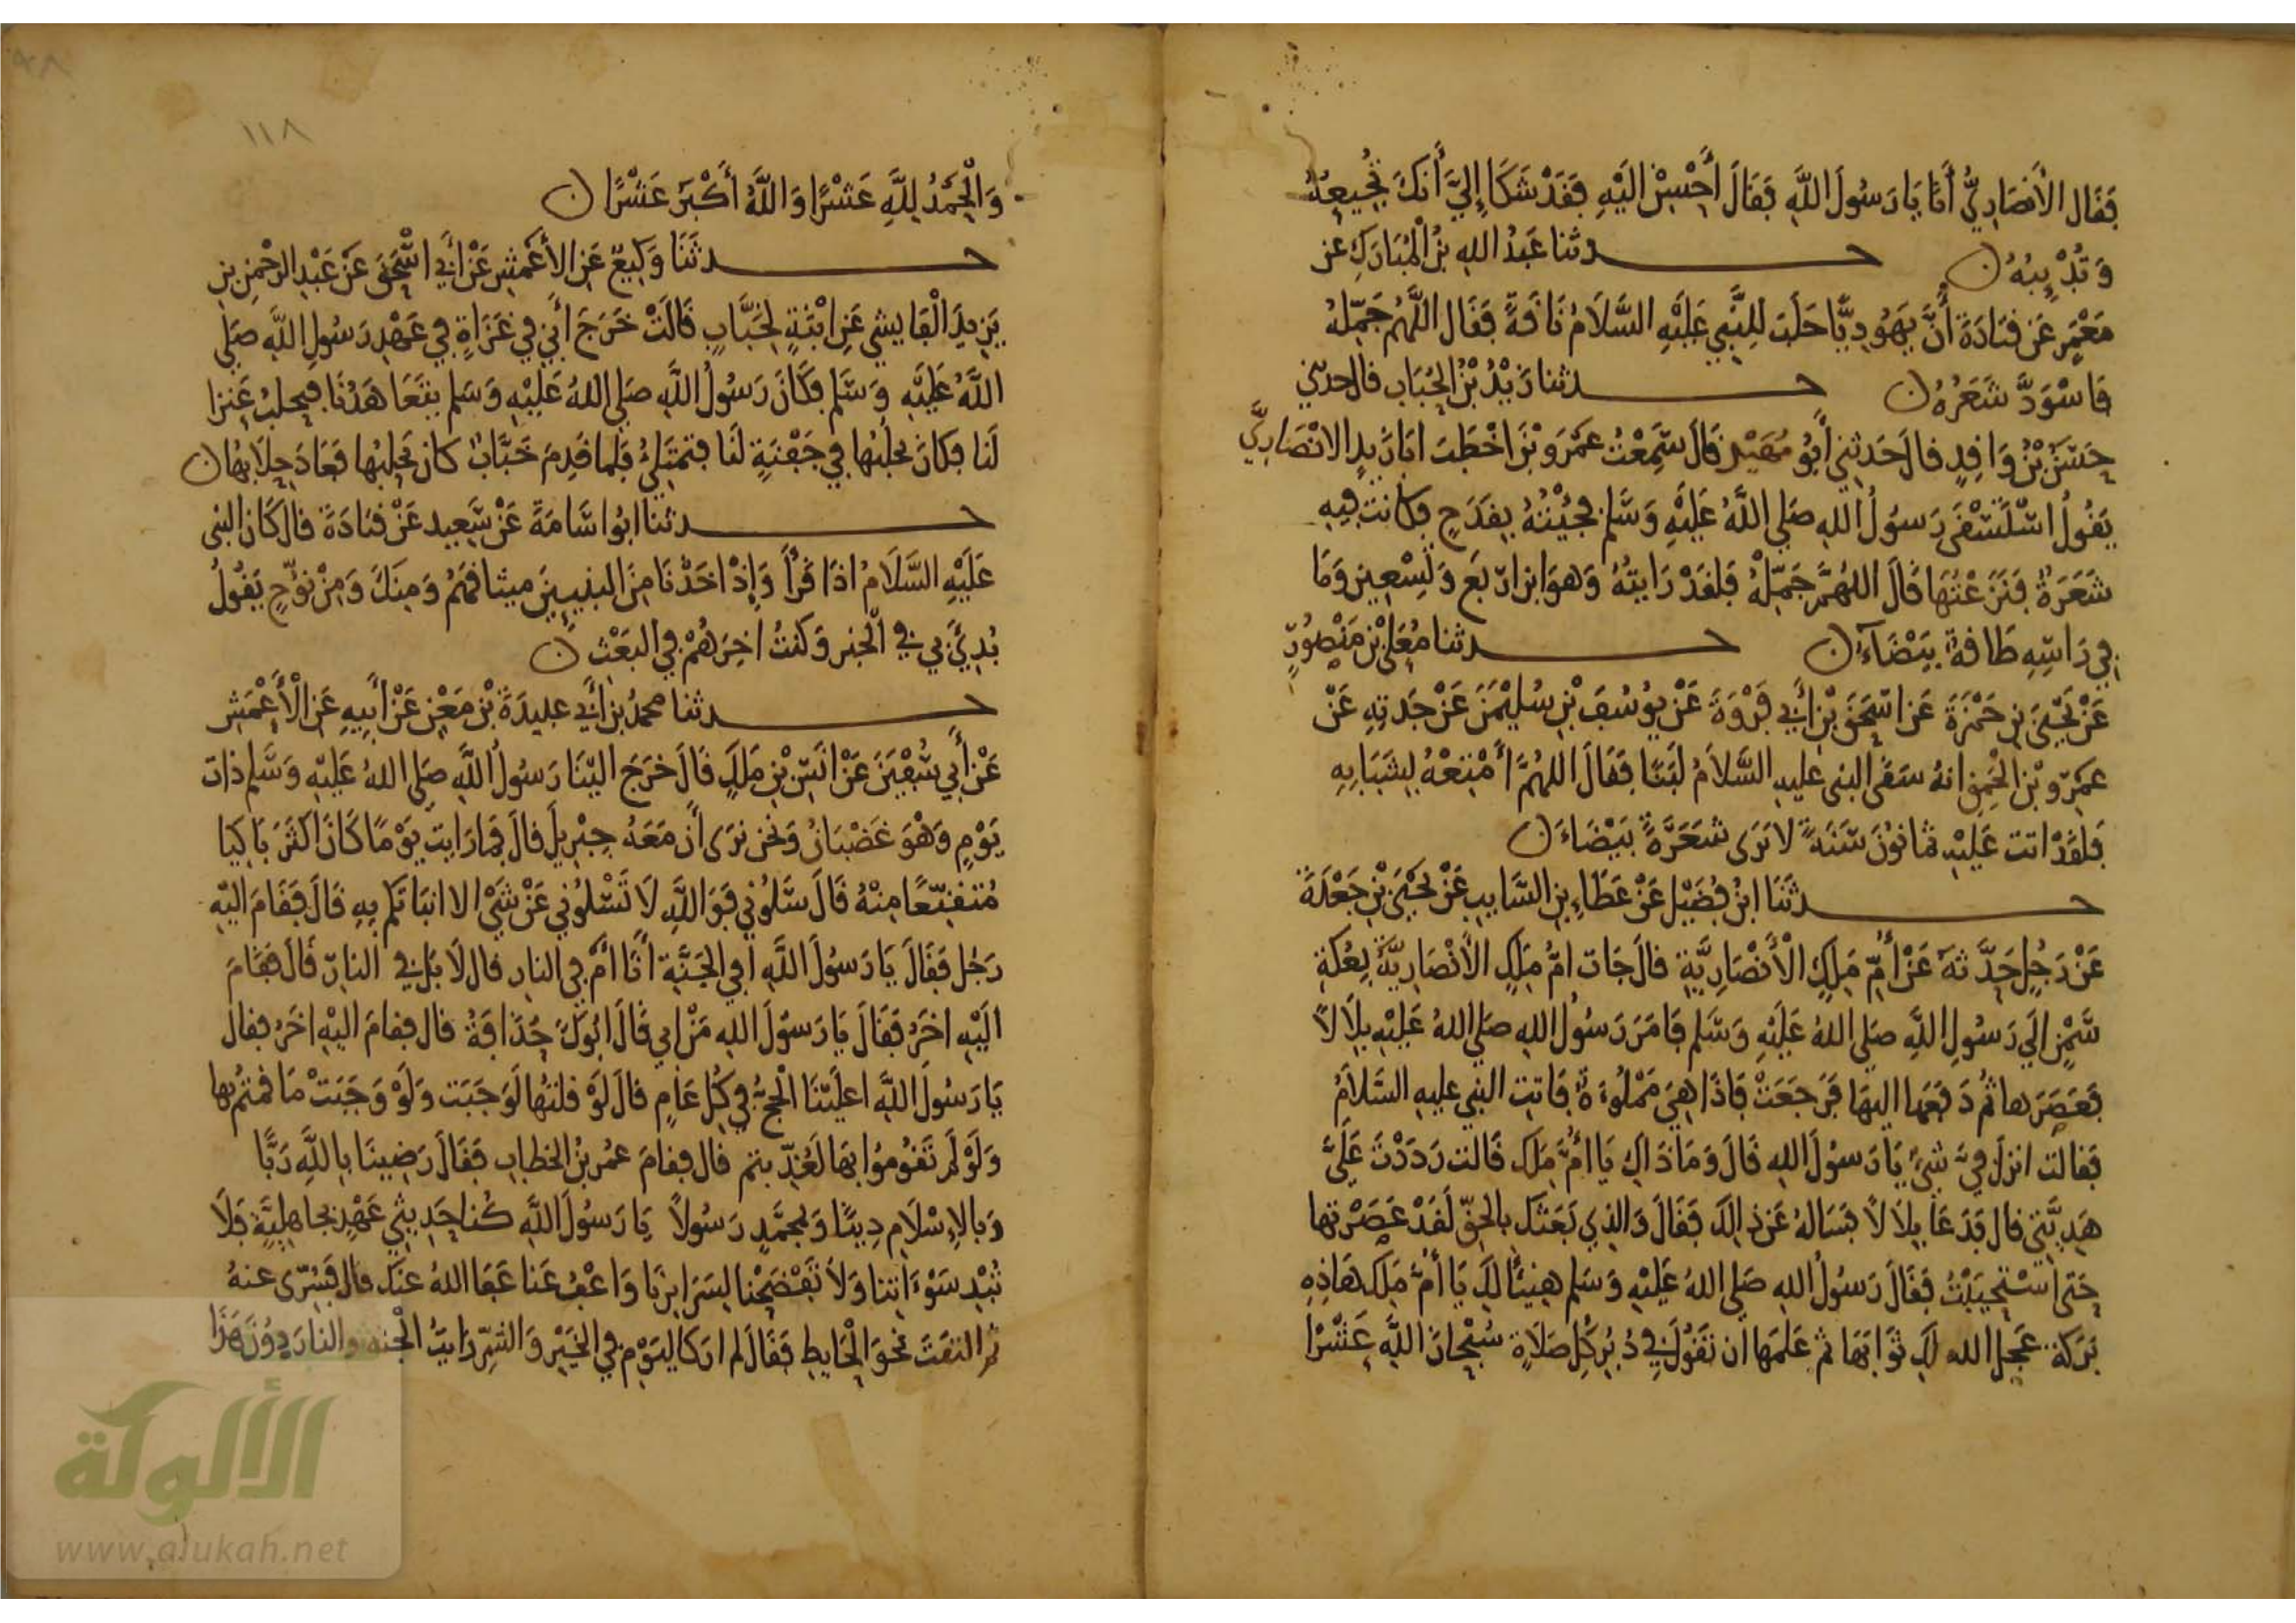 فَقَال الأنصَارِيُّ أَنَا يَا رَسُولَ اللَّهِ فَقَالَ أَحْسِنْ اليْهِ فَقَدْ شَكَا إِليَّ أَنكَ تُجُيعهُ
وَتُدْئِبُهُ ن حدثنا عَبْدُ اللهِ بْنُ الْمُبَارَكِ عَن
مَعْمَرٍ عَن قتَادَةَ أَنَّ يَهُودِيًّا حَلَبَ لِلنَّبِي عَلَيْهِ السَّلَامُ نَاقَةً فقَال اللَّهُمَّ جَمِّلهُ
فَاسْوَدَّ شَعَرُهُ ن حدثنا زَيْدُ بْنُ الْحُبَابِ قال حدثني
حُسَيْنُ بْنُ وَاقِدٍ قالَ حَدثني أَبُو نَهيْكٍ قَالَ سَمِعْتُ عَمْرَو بْنَ اخْطَبَ ابَا زَيْدٍ الانْصَارِيَّ
يَقُولُ اسْتَسْقَى رَسُولُ اللهِ صَلى اللَّهُ عَلَيْهِ وَسَلم فجِئْتُهُ بِقَدَحٍ فكانتْ فِيهِ
شَعَرَةٌ فَنَزَعْتُهَا قَالَ اللهُمَّ جَمِّلْهُ فَلقدْ رَايتُهُ وَهوَ ابن ارْبَعٍ وَتِسْعِينَ وَمَا
في رَاسِهِ طَاقةٌ بَيْضَآءُ ن حدثنا مُعَلى بْن مَنْصُورٍ
عَنْ يَحْيَى بْنِ حَمْزَةَ عَن اسْحَقَ بْنِ أَبي فَرْوَةَ عَنْ يوُسُفَ بْنِ سُلَيْمَنَ عَنْ جَدتِهِ عَنْ
عَمْرِو بْنِ الْحَمِقِ انهُ سَقَى النبى عليهِ السَّلامُ لَبَنًا فقَالَ اللهُمَّ أَمْتِعْهُ بِشَبَابِهِ
فَلقدْ اتت عَليْهِ ثمانوُنَ سَنَةً لا يَرَى شعَرَةً بَيْضَاءَ ن
حدثَنَا ابْنُ فُضَيْلٍ عَنْ عَطَاءِ بْنِ السَّايبِ عَنْ يَحْيَى بْنِ جَعْدَةَ
عَنْ رَجُلٍ حَدَّثهُ عَنْ أُمِّ مَلِكٍ الْأَنْصَارِيَّةِ قالَ جَات امُّ مَلِكٍ الْأَنْصَارِيَّةُ بِعُكةِ
سَمْنٍ الَي رَسُولِ اللَّهِ صَلى اللهُ عَلَيْهِ وَسَلم فامَرَ رَسُولُ اللهِ صَلى اللهُ عَليْهِ بِلاَلاً
فَعَصَرَهَا ثُم دَفعَها اليهَا فَرَجَعَتْ فَاذَا هِيَ مَمْلُوءَةٌ فَاتتِ النبي عليهِ السَّلاَمُ
فقالت انزلَ فيَّ شيْءٌ يَا رَسُولَ اللهِ قَالَ وَمَا ذَاكِ يَا أُمَّ مَلِك قَالت رَدَدْتَ عَلَيَّ
هَدِيَّتي قالَ فدَعَا بِلاَلاً فسَالهُ عَن ذلِكَ فَقَالَ وَالذِي بَعَثَكَ بالحَقِّ لَقدْ عَصَرْتها
حَتى اسْتَحْيَيْتُ فَقَالَ رَسُولُ اللهِ صَلى اللهُ عَليْهِ وَسَلم هنِيئًا لَكِ يَا أُمَّ مَلِكٍ هَاذِهِ
بَرَكة عَجلَ الله لَكِ ثوَابَهَا ثم عَلمَها ان تقُولَ في دُبُرِ كُلِّ صَلَاةٍ سُبْحانَ اللَّهِ عَشْرًا
وَالْحَمْدُ لِلَّهِ عَشْرًا وَاللَّهُ أَكْبَرُ عَشْرًا ن
حدثَنَا وَكِيعٌ عَنِ الأَعْمَشِ عَنْ أَبي اسْحَقَ عَنْ عَبْدِ الرَّحْمنِ بنِ
يَزِيدَ الْفَايشي عَنِ ابْنَةٍ لِخَبَّابٍ قَالَتْ خَرَجَ أَبي في غَزَاةٍ في عَهْدِ رَسُولِ اللَّهِ صَلى
اللَّهُ عَلَيْهِ وَسَلم فكَانَ رَسُولُ اللَّهِ صَلى اللهُ عَلَيْهِ وَسَلم يتَعَاهَدُنَا فيحلبُ عَنزا
لَنَا فكانَ يحلبُها في جَفْنَةٍ لَنَا فتمتَلِئُ فلما قَدِمَ خَبَّابٌ كان يَحلِبُها فعَادَ حِلاَبُها ن
حدثنا ابوُ اسَامَةَ عَنْ سَعِيد عَنْ قتادَةَ قالَ كَانَ النبى
عَلَيْهِ السَّلَامُ اذَا قَرَأَ وَإِذْ اخَذْنَا مِنَ النبيينَ ميثاقَهُمْ وَمِنكَ وَمِنْ نوُحٍ يَقُولُ
بُدِئَ بي في الْخيرِ وَكنتُ اخِرَهُمْ في البَعْثِ ن
حدثنا محمدُ بن أَبي عبيدَةَ بْن مَعْنٍ عَنْ أَبِيهِ عَن الْأَعْمَشِ
عَنْ أَبي سُفْيَنَ عَنْ انَسِ بْنِ مَلكٍ قَالَ خرَجَ اليْنَا رَسُولُ اللَّهِ صَلى اللهُ عَلَيْهِ وَسَلم ذَاتَ
يَوْمٍ وَهْوَ غَضْبَانُ وَنحن نرَى أَن مَعَهُ جِبْرِيلَ قالَ فما رَايتُ يَوْمًا كَانَ اكثرَ بَاكيا
مُتقَنِّعًا مِنْهُ قَالَ سَلُونِي فَوَاللَّهِ لَا تَسْلُونِي عَنْ شَيْءٍ الا انبَاتكم بِهِ قَالَ فَقَامَ اليْهِ
رَجُل فَقَالَ يَا رَسُولَ اللَّهِ افي الْجَنَّةِ أَنَا أَمْ في النارِ قال لاَ بَل في النارِ قَالَ فقَامَ
الَيْهِ اخَرُ فَقَالَ يَا رَسُولَ اللهِ مَنْ ابي قَالَ ابُوكَ حُذَافَةُ قال فقامَ اليْهِ اخَرُ فقالَ
يَا رَسُولَ اللَّهِ اعَليْنَا الْحَجُّ في كُلِّ عَامٍ قالَ لَوْ قلتُها لَوَجَبَت وَلَوْ وَجَبَتْ مَا قمتُمْ بها
وَلَوْ لَمْ تَقُومُوا بهَا لَعُذِّبتم قال فقامَ عمُر بنُ الخطابِ فَقَالَ رَضِينَا بِاللَّهِ رَبًّا
وَبالإِسْلَامِ دِينًا وَبمُحَمَّدٍ رَسُولاً يَا رَسُولَ اللَّهِ كُنا حَدِيثي عَهْدٍ بجاهِليَّةٍ فَلَا
تُبْدِ سَوْءَاتِنا وَلاَ تَفْضَحْنا لِسَرَايِرِنَا وَاعْفُ عَنا عَفَا اللهُ عَنكَ قال فَسُرّى عنهُ
ثم التفَتَ نحوَ الْحايطِ فَقَالَ لم ارَ كاليَوْمِ في الخَيْرِ وَالشرِّ رَايتُ الْجنة والنارَ دُونَ هَذَا
١١٨
الألوكة
www.alukah.net